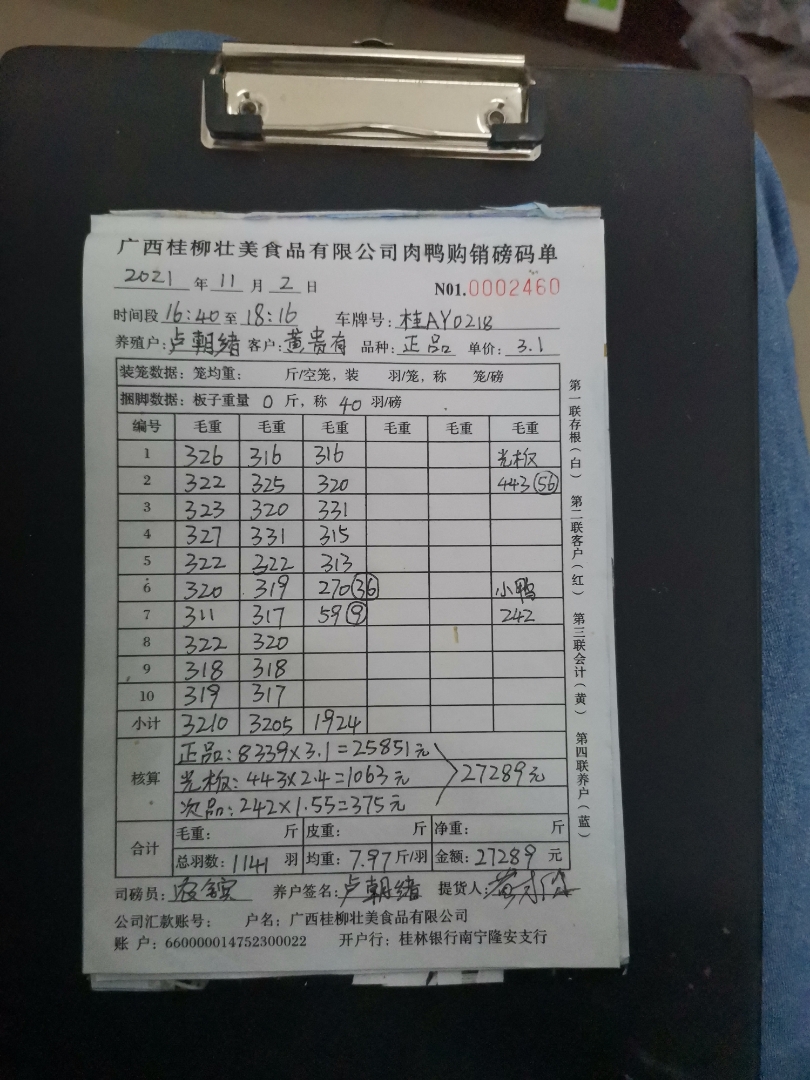 广西桂柳壮美食品有限公司肉鸭购销磅码单
2021 年 11 月 2 日 N01.0002460
时间段 16:40 至 18:16 车牌号: 桂AY0218
养殖户: 卢朝绪 客户: 黄贵有 品种: 正品 单价: 3.1
装笼数据: 笼均重: 斤/空笼, 装 羽/笼, 称 笼/磅
捆脚数据: 板子重量 0 斤, 称 40 羽/磅
编号 毛重 毛重 毛重 毛重 毛重 毛重
1 326 316 316 光板
2 322 325 320 443 56
3 323 320 331
4 327 331 315
5 322 322 313
6 320 319 270 36 小鸭
7 311 317 59 9 242
8 322 320
9 318 318
10 319 317
小计 3210 3205 1924
核算
正品: 8339×3.1=25851元
光板: 443×2.4=1063元 27289元
次品: 242×1.55=375元
合计
毛重: 斤 皮重: 斤 净重: 斤
总羽数: 1141 羽 均重: 7.97 斤/羽 金额: 27289 元
司磅员: 养户签名: 卢朝绪 提货人:
公司汇款账号: 户名: 广西桂柳壮美食品有限公司
账 户: 660000014752300022 开户行: 桂林银行南宁隆安支行
第一联存根(白) 第二联客户(红) 第三联会计(黄) 第四联养户(蓝)